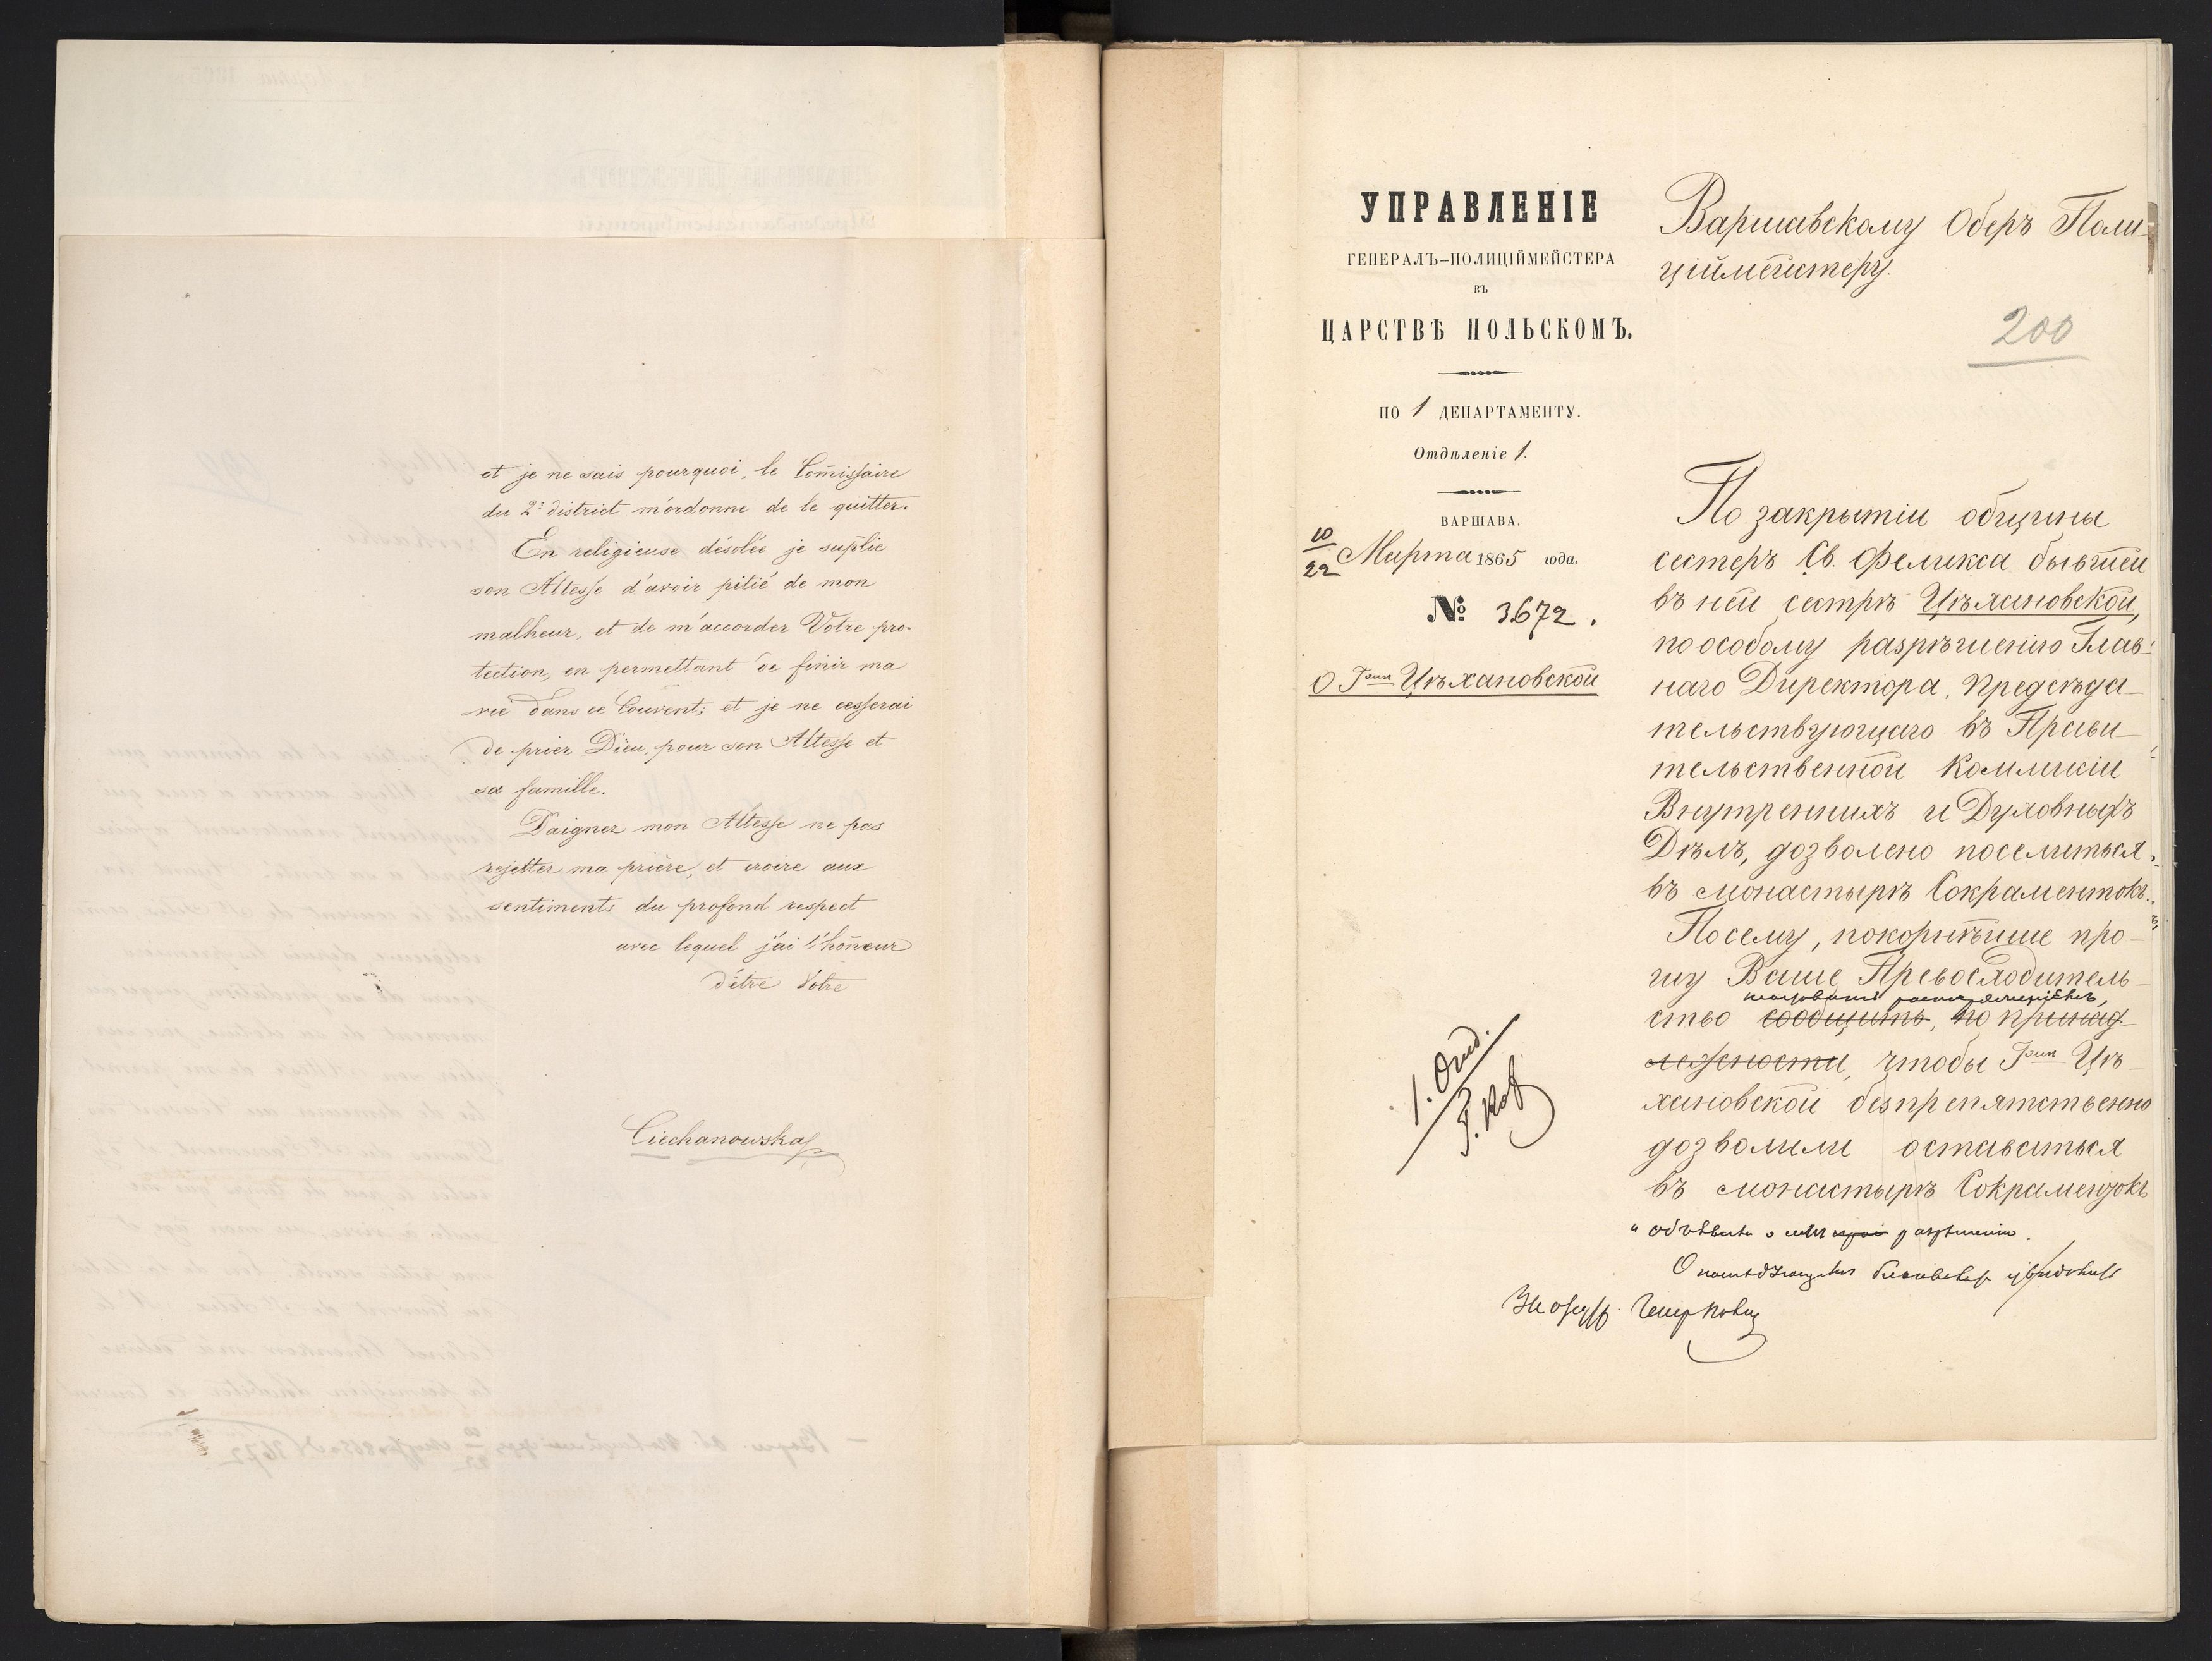 et je ne sais pourquoi, le Com̄issaire
du 2ᵈ district m'ordonne de le quitter.
En religieuse désolée je suplie
son Altesse d'avoir pitié de mon
malheur, et de m'accorder Votre pro-
tection, en permettant de finir ma
vie dans ce Couvent; et je ne cesserai
de prier Dieu, pour son Altesse et
sa famille.
Daignez mon Altesse ne pas
rejetter ma prière, et croire aux
sentiments du profond respect
avec lequel j'ai l'hon̄eur
d'être Votre
Ciechanowska
УПРАВЛЕНІЕ
ГЕНЕРАЛЪ-ПОЛИЦІЙМЕЙСТЕРА
ВЪ
ЦАРСТВѢ ПОЛЬСКОМЪ.
ПО 1 ДЕПАРТАМЕНТУ.
Отдѣленіе 1.
ВАРШАВА.
10/22 Марта 1865 года.
№ 3672.
О Гжѣ Цѣхановской
Варшавскому Оберъ Поли-
ціймейстеру.
200
По закрытіи общины
сестеръ Св. Феликса бывшей
въ ней сестрѣ Цѣхановской,
по особому разрѣшенію Глав-
наго Директора, Предсѣда-
тельствующаго въ Прави-
тельственной Коммисіи
Внутреннихъ и Духовныхъ
Дѣлъ, дозволено поселиться
въ монастырѣ Сокраментокъ.
Посему, покорнѣйше про-
шу Ваше Превосходитель-
ство сообщить, по принад-
лежности, чтобы Гжѣ Цѣ-
хановской безпрепятственно
дозволили оставаться
въ монастырѣ Сокраментокъ